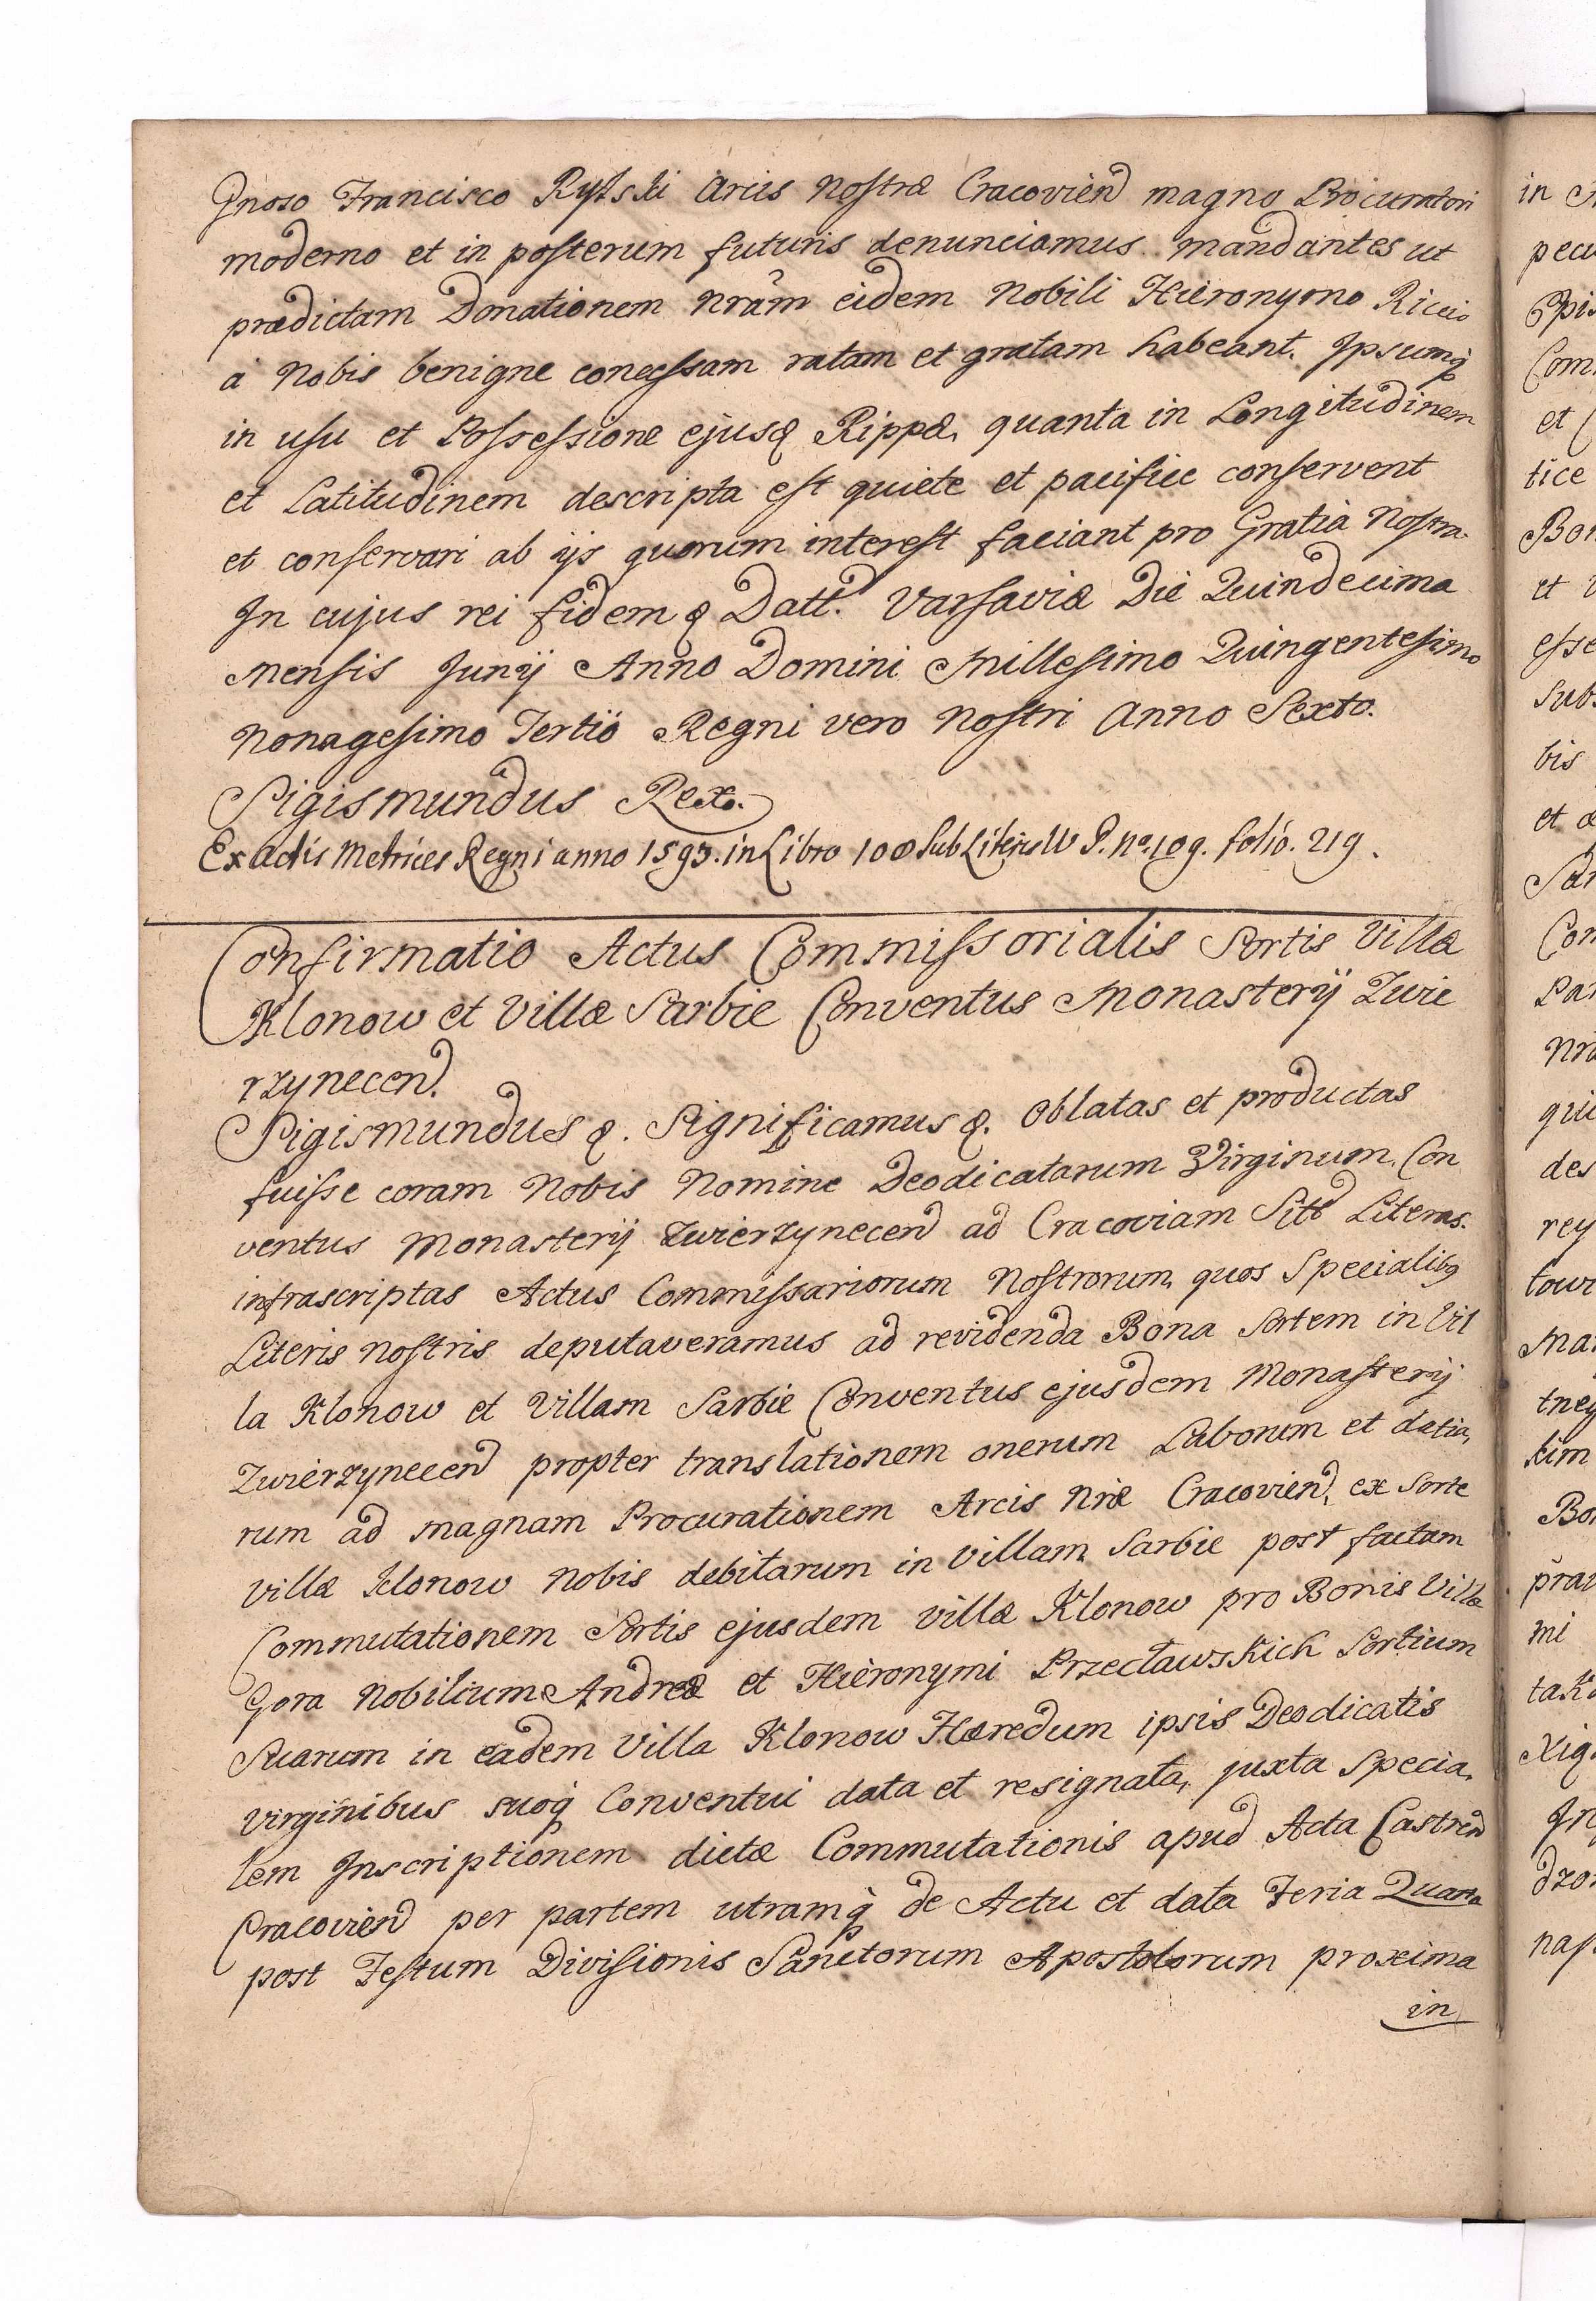 Gnoso Francisco Rylski Arcis Nostræ Cracovien magno Procuratori
moderno et in posterum futuris denunciamus mandantes ut
prædictam Donationem nrãm eidem Nobili Hieronymo Riccio
a Nobis benigne concessam ratam et gratam habeant. Ipsumq
in usu et Possessione ejusd Rippæ, quanta in Longitudinem
et Latitudinem descripta est quiete et pacifice conservent
et conservari ab ijs quorum interest faciant pro Gratia Nostra.
In cujus rei fidem & Datt. Varsaviæ Die Quindecima
Mensis Junij Anno Domini Millesimo Quingentesimo
Nonagesimo Tertio Regni vero Nostri Anno Sexto.
Sigismundus Rex.
Ex Actis Metrices Regni anno 1593. in Libro 100 Sub Literis W P. no. 109. folio. 219.
Confirmatio Actus Commissorialis Sortis Villæ
Klonow et Villæ Sarbie Conventus Monasterij Zwie
rzynecen.
Sigismundus &. Significamus &. Oblatas et productas
fuisse coram Nobis Nomine Deodicatarum Virginum. Con
ventus Monasterij Zwierzynecen ad Cracoviam Sitt Literas.
infrascriptas Actus Commissariorum Nostrorum, quos Specialibq
Literis Nostris deputaveramus ad revidenda Bona Sortem in Vil
la Klonow et Villam Sarbie Conventus ejusdem Monasterij
Zwierzynecen propter translationem onerum Laborum et datia,
rum ad magnam Procurationem Arcis Nræ Cracovien, ex Sorte
villæ Klonow Nobis debitarum in Villam Sarbie post factam
Commutationem Sortis ejusdem villæ Klonow pro Bonis Villæ
Gora Nobilium Andreæ et Hieronymi Przecławskich Sortium
Suarum in eadem Villa Klonow Hæredum ipsis Deodicatis
Virginibus suoq Conventui data et resignata, juxta Specia,
lem Inscriptionem dictæ Commutationis apud Acta Castren
Cracovien per partem utramq de Actu et data Feria Quarta
post Festum Divisionis Sanctorum Apostolorum proxima
in